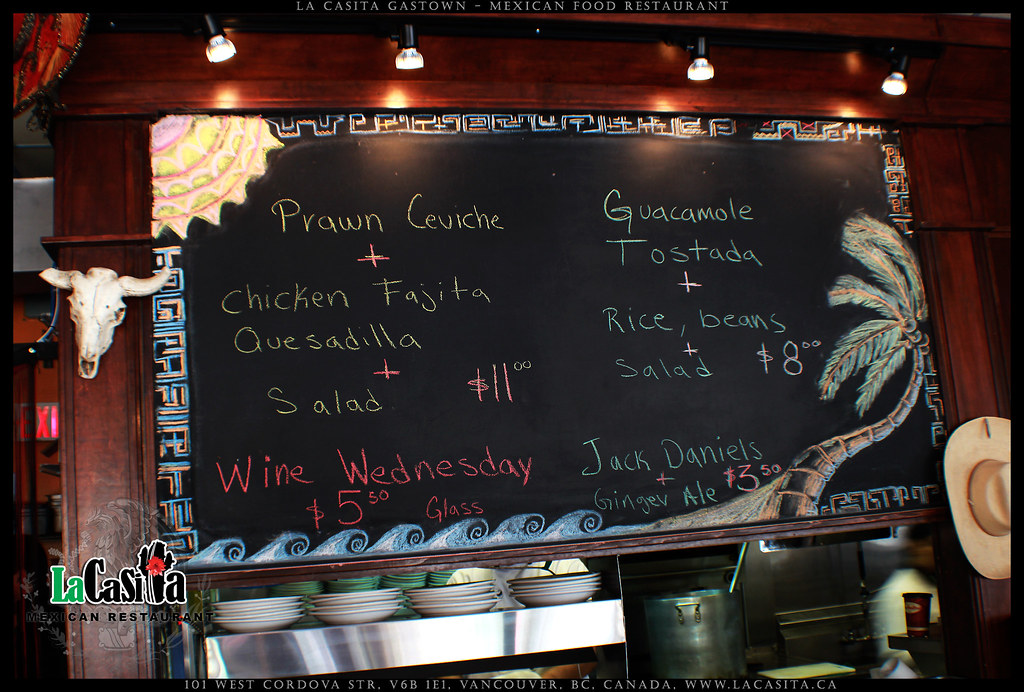 LA CASITA GASTOWN – MEXICAN FOOD RESTAURANT
Prawn Ceviche
+
Chicken Fajita
Quesadilla
+
Salad $11.00
Guacamole
Tostada
+
Rice, beans
+
Salad $8.00
Wine Wednesday
$5.50 Glass
Jack Daniels
+ $3.50
Ginger Ale
LaCasita
MEXICAN RESTAURANT
101 WEST CORDOVA STR, V6B 1E1, VANCOUVER, BC, CANADA, WWW.LACASITA.CA